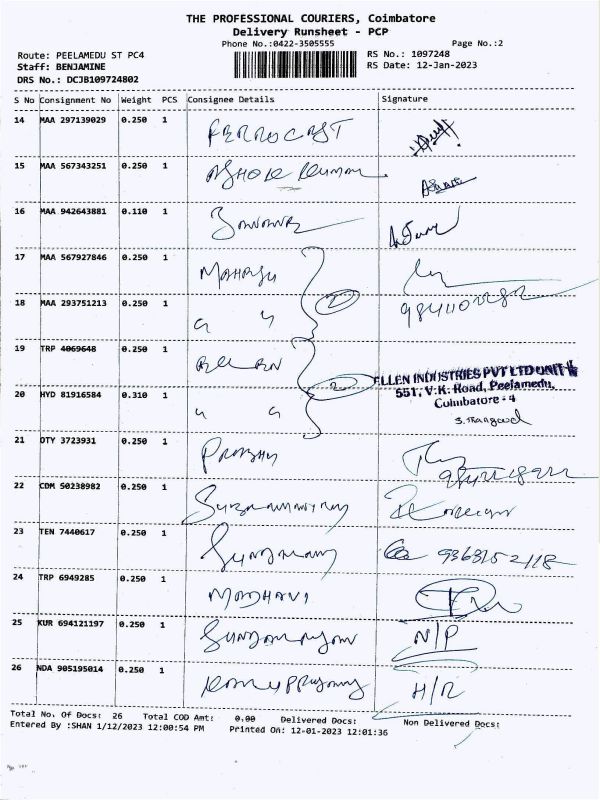 THE PROFESSIONAL COURIERS, Coimbatore
Delivery Runsheet - PCP
Phone No.:0422-3505555
Page No.:2
Route: PEELAMEDU ST PC4
RS No.: 1097248
Staff: BENJAMINE
RS Date: 12-Jan-2023
DRS No.: DCJB109724802
S No Consignment No Weight PCS Consignee Details Signature
14 MAA 297139029 0.250 1 FERROCAST
15 MAA 567343251 0.250 1 ASHOK Kumar
16 MAA 942643881 0.110 1
17 MAA 567927846 0.250 1
18 MAA 293751213 0.250 1
19 TRP 4069648 0.250 1
ELLEN INDUSTRIES PVT LTD UNIT-II
20 HYD 81916584 0.310 1 551, V.K. Road, Peelamedu,
Coimbatore - 4
21 OTY 3723931 0.250 1 PRABHU
22 CDM 50238982 0.250 1
23 TEN 7440617 0.250 1
24 TRP 6949285 0.250 1 MADHAVI
25 KUR 694121197 0.250 1 N/P
26 NDA 905195014 0.250 1 H/R
Total No. Of Docs: 26 Total COD Amt: 0.00 Delivered Docs: Non Delivered Docs:
Entered By :SHAN 1/12/2023 12:00:54 PM Printed On: 12-01-2023 12:01:36